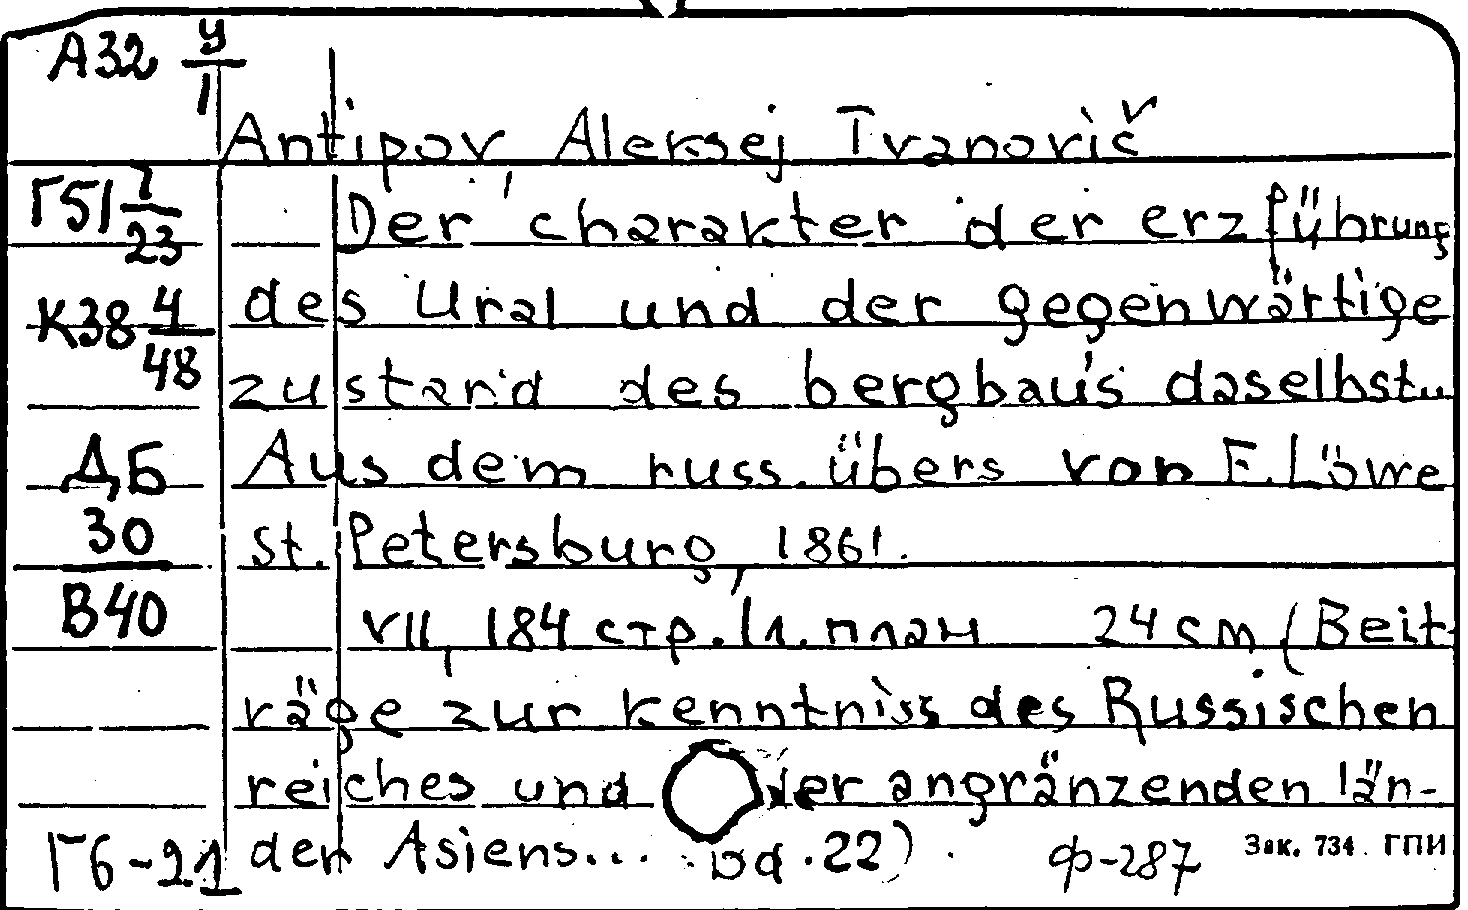 А32 У/1
Antipov Aleksej Ivanovič
Г51 7/23
Der charakter der erzführung
К38 4/48
des Ural und der gegenwärtige
zustand des bergbaus daselbst..
ДБ
Aus dem russ. übers von F. Löwe
30/В40
st. Petersburg, 1861.
VII, 184 стр. 1 л. план 24 cm (Beit-
räge zur kenntniss des Russischen
reiches und der angränzenden län-
der Asiens... bd. 22).
Г6-21
ф-287
Зак. 734 ГПИ